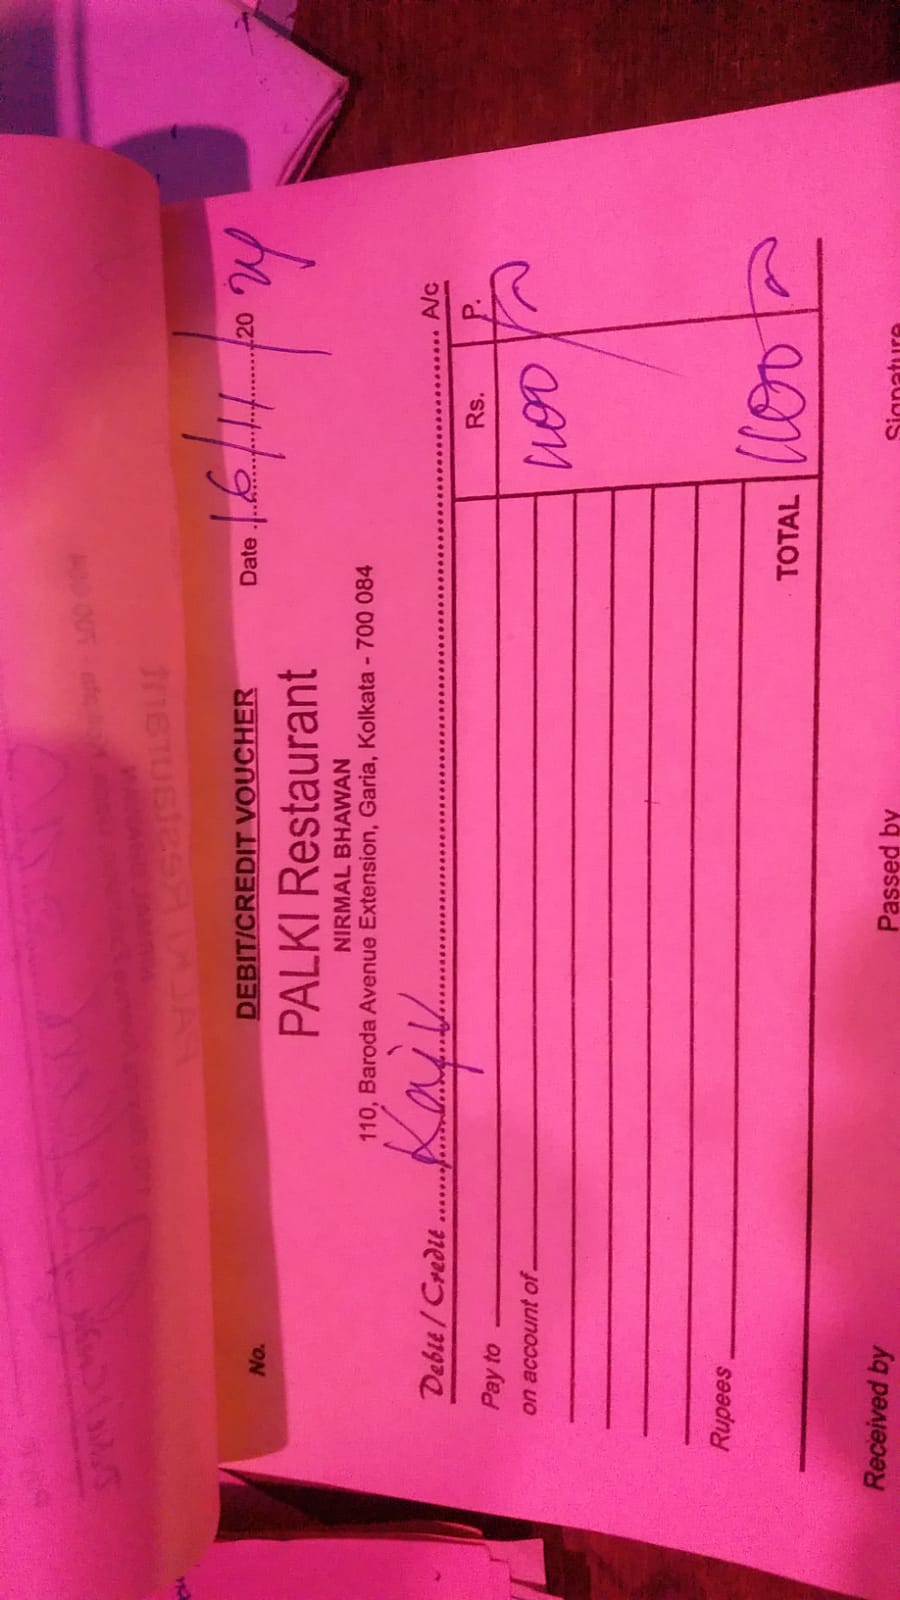 No.
DEBIT/CREDIT VOUCHER
Date 16/11/2024
PALKI Restaurant
NIRMAL BHAWAN
110, Baroda Avenue Extension, Garia, Kolkata - 700 084
Debit / Credit Rajiv A/c
Rs. P.
Pay to
on account of
1100/-
Rupees
TOTAL 1100/-
Received by Passed by Signature